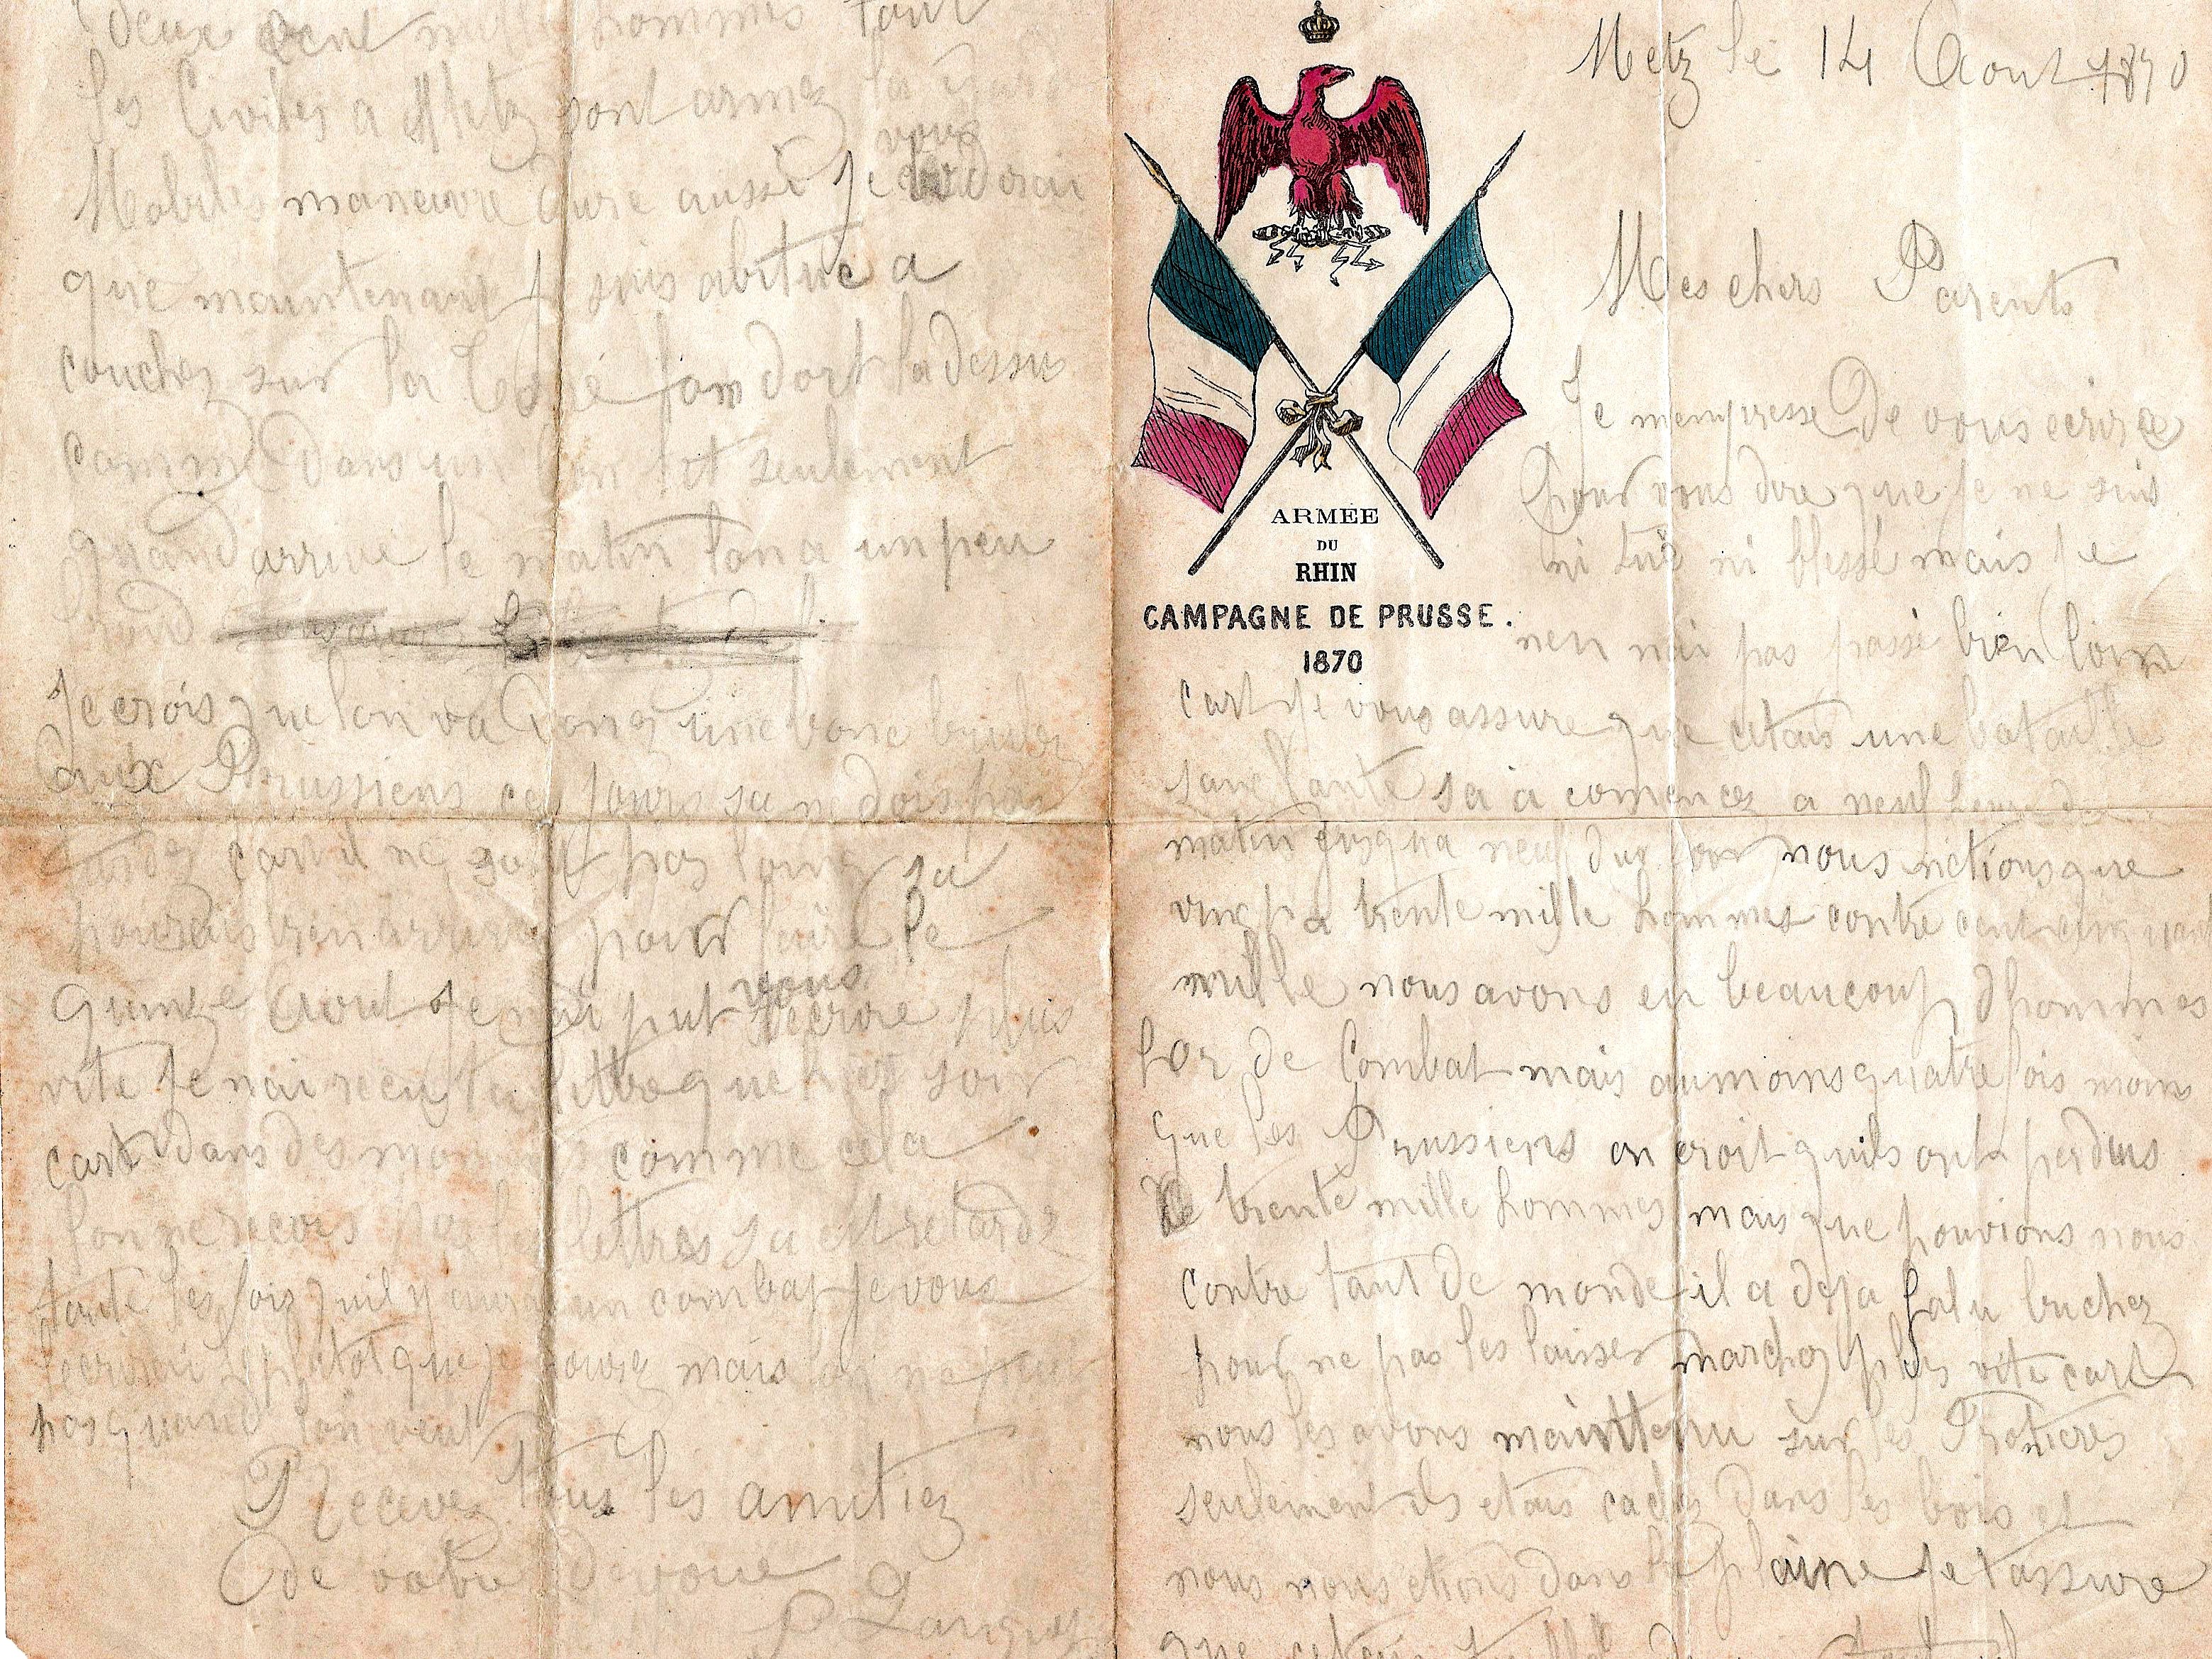 Metz le 14 Aout 1870
Mes chers Parents
Je mempresse De vous ecrire
pour vous dire que je ne suis
ni tué ni blessé mais je
nen nai pas passé bien loin
cart je vous assure que cetais une bataille
sanglante sa a comencez a neuf heure du
matin jusqua neuf du soir nous nétions que
vingt a trente mille hommes contre cent cinquante
mille nous avons eu beaucoup dhommes
hor de Combat mais aumoins quatre fois moin
que les Prussiens on croit quils ont perdus
De trente mille hommes mais que pouvions nous
contre tant de monde il a deja falu buchez
pour ne pas les laisser marchez plus vite cart
nous les avons mainttenu sur les Frontieres
seulement ils etais cachez Dans les bois et
nous nous etions dans la plaine je tassure
que
ARMÉE
DU
RHIN
CAMPAGNE DE PRUSSE.
1870
deux cent mille hommes tout
les Civiles a Metz sont armez la Garde
Mobiles maneuvre dure aussi Je vous dirai
que maintenant je suis abitué a
couchez sur la Terre lon dort la dessus
comme Dans un bon lit seulement
quand arrive le matin lon a un peu
froid
Je crois que lon va Donez une bonne brulez
aux Prussiens ces jours sa ne dois pas
tardez cart il ne sont pas loing sa
pourais bien arriver pour faire le
quinze Aout Je nai put vous ecrire plus
vite je nai recu ta lettre que hier soir
cart dans des moments comme cela
lon ne recois pas les lettres sa est retardé
toute les fois quil y aura un combat je vous
ecrirai plutot que je pourez mais lon ne peut
pas quand lon veut
Recevez tous les amitiez
de votre Devoué
P Langroz